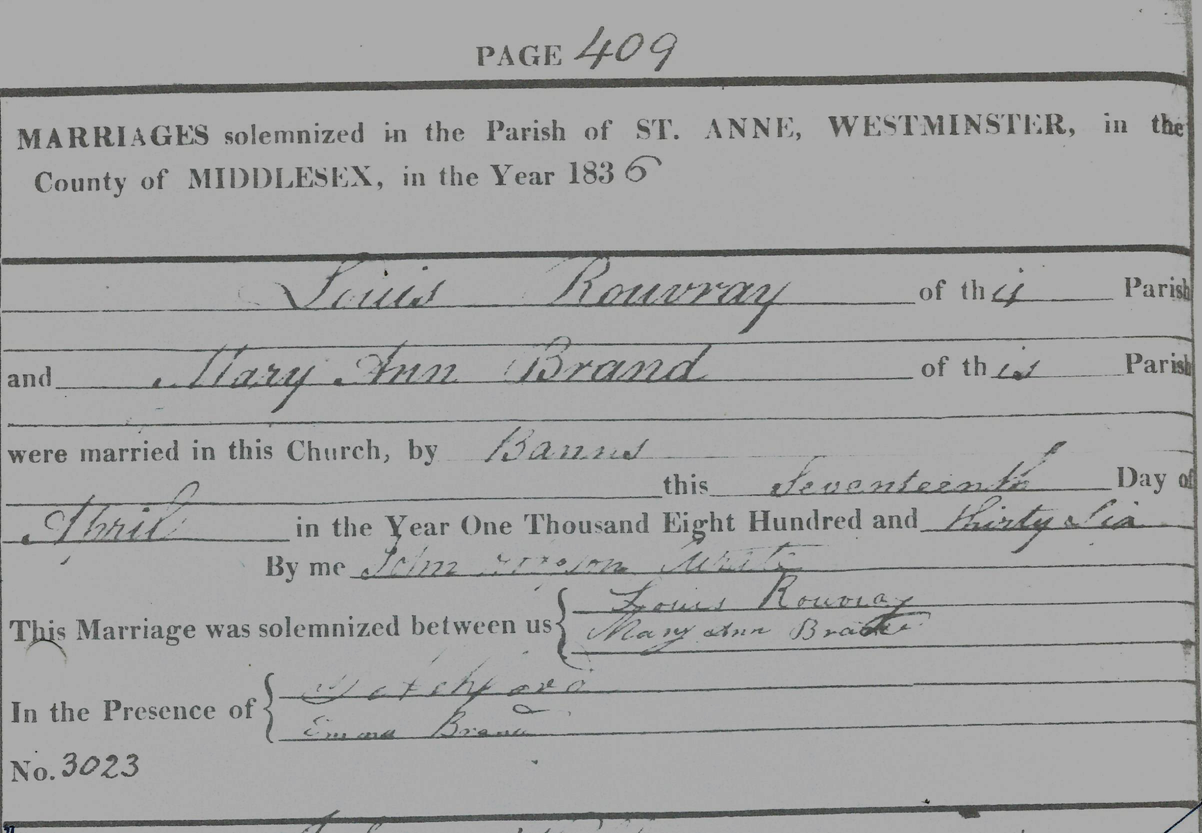 PAGE 409
MARRIAGES solemnized in the Parish of ST. ANNE, WESTMINSTER, in the
County of MIDDLESEX, in the Year 1836
Louis Rouvray of this Parish
and Mary Ann Brand of this Parish
were married in this Church, by Banns
this Seventeenth Day of
April in the Year One Thousand Eight Hundred and thirty Six
By me John
This Marriage was solemnized between us { Louis Rouvray
Mary Ann Brand
In the Presence of {
Emma Brand
No. 3023